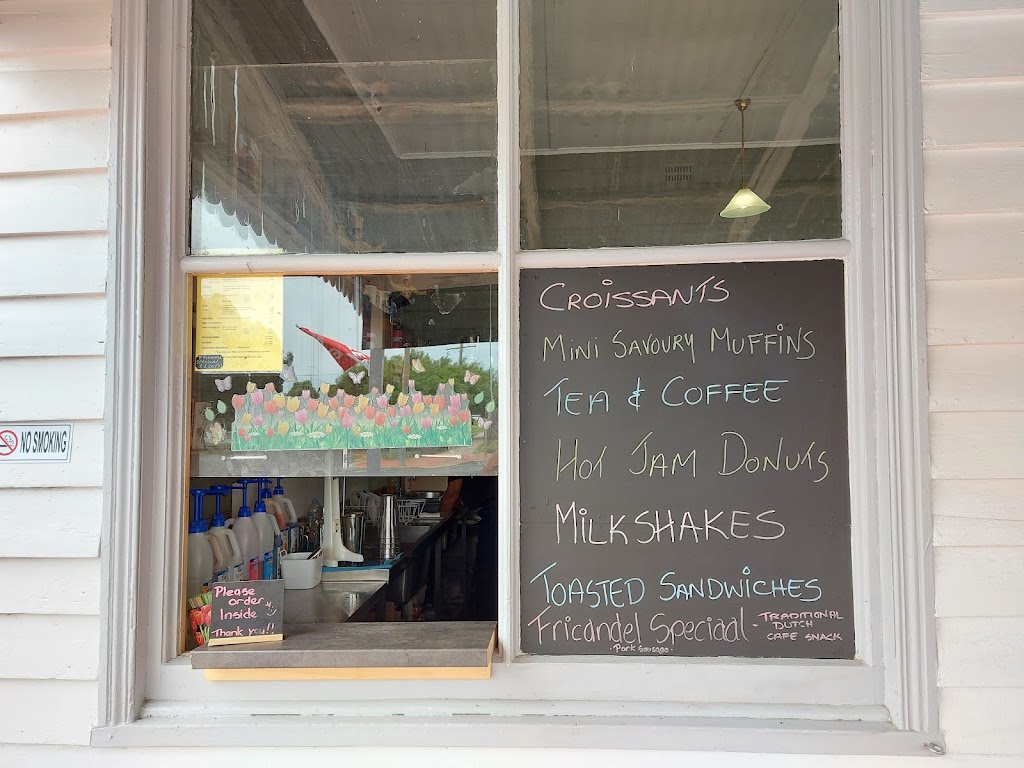 CROISSANTS
MINI SAVOURY MUFFINS
TEA & COFFEE
HOT JAM DONUTS
MILKSHAKES
TOASTED SANDWICHES
Fricandel Speciaal - TRADITIONAL
DUTCH
CAFE SNACK
- Pork Sausage -
NO SMOKING
Please
order
Inside
Thank you!!